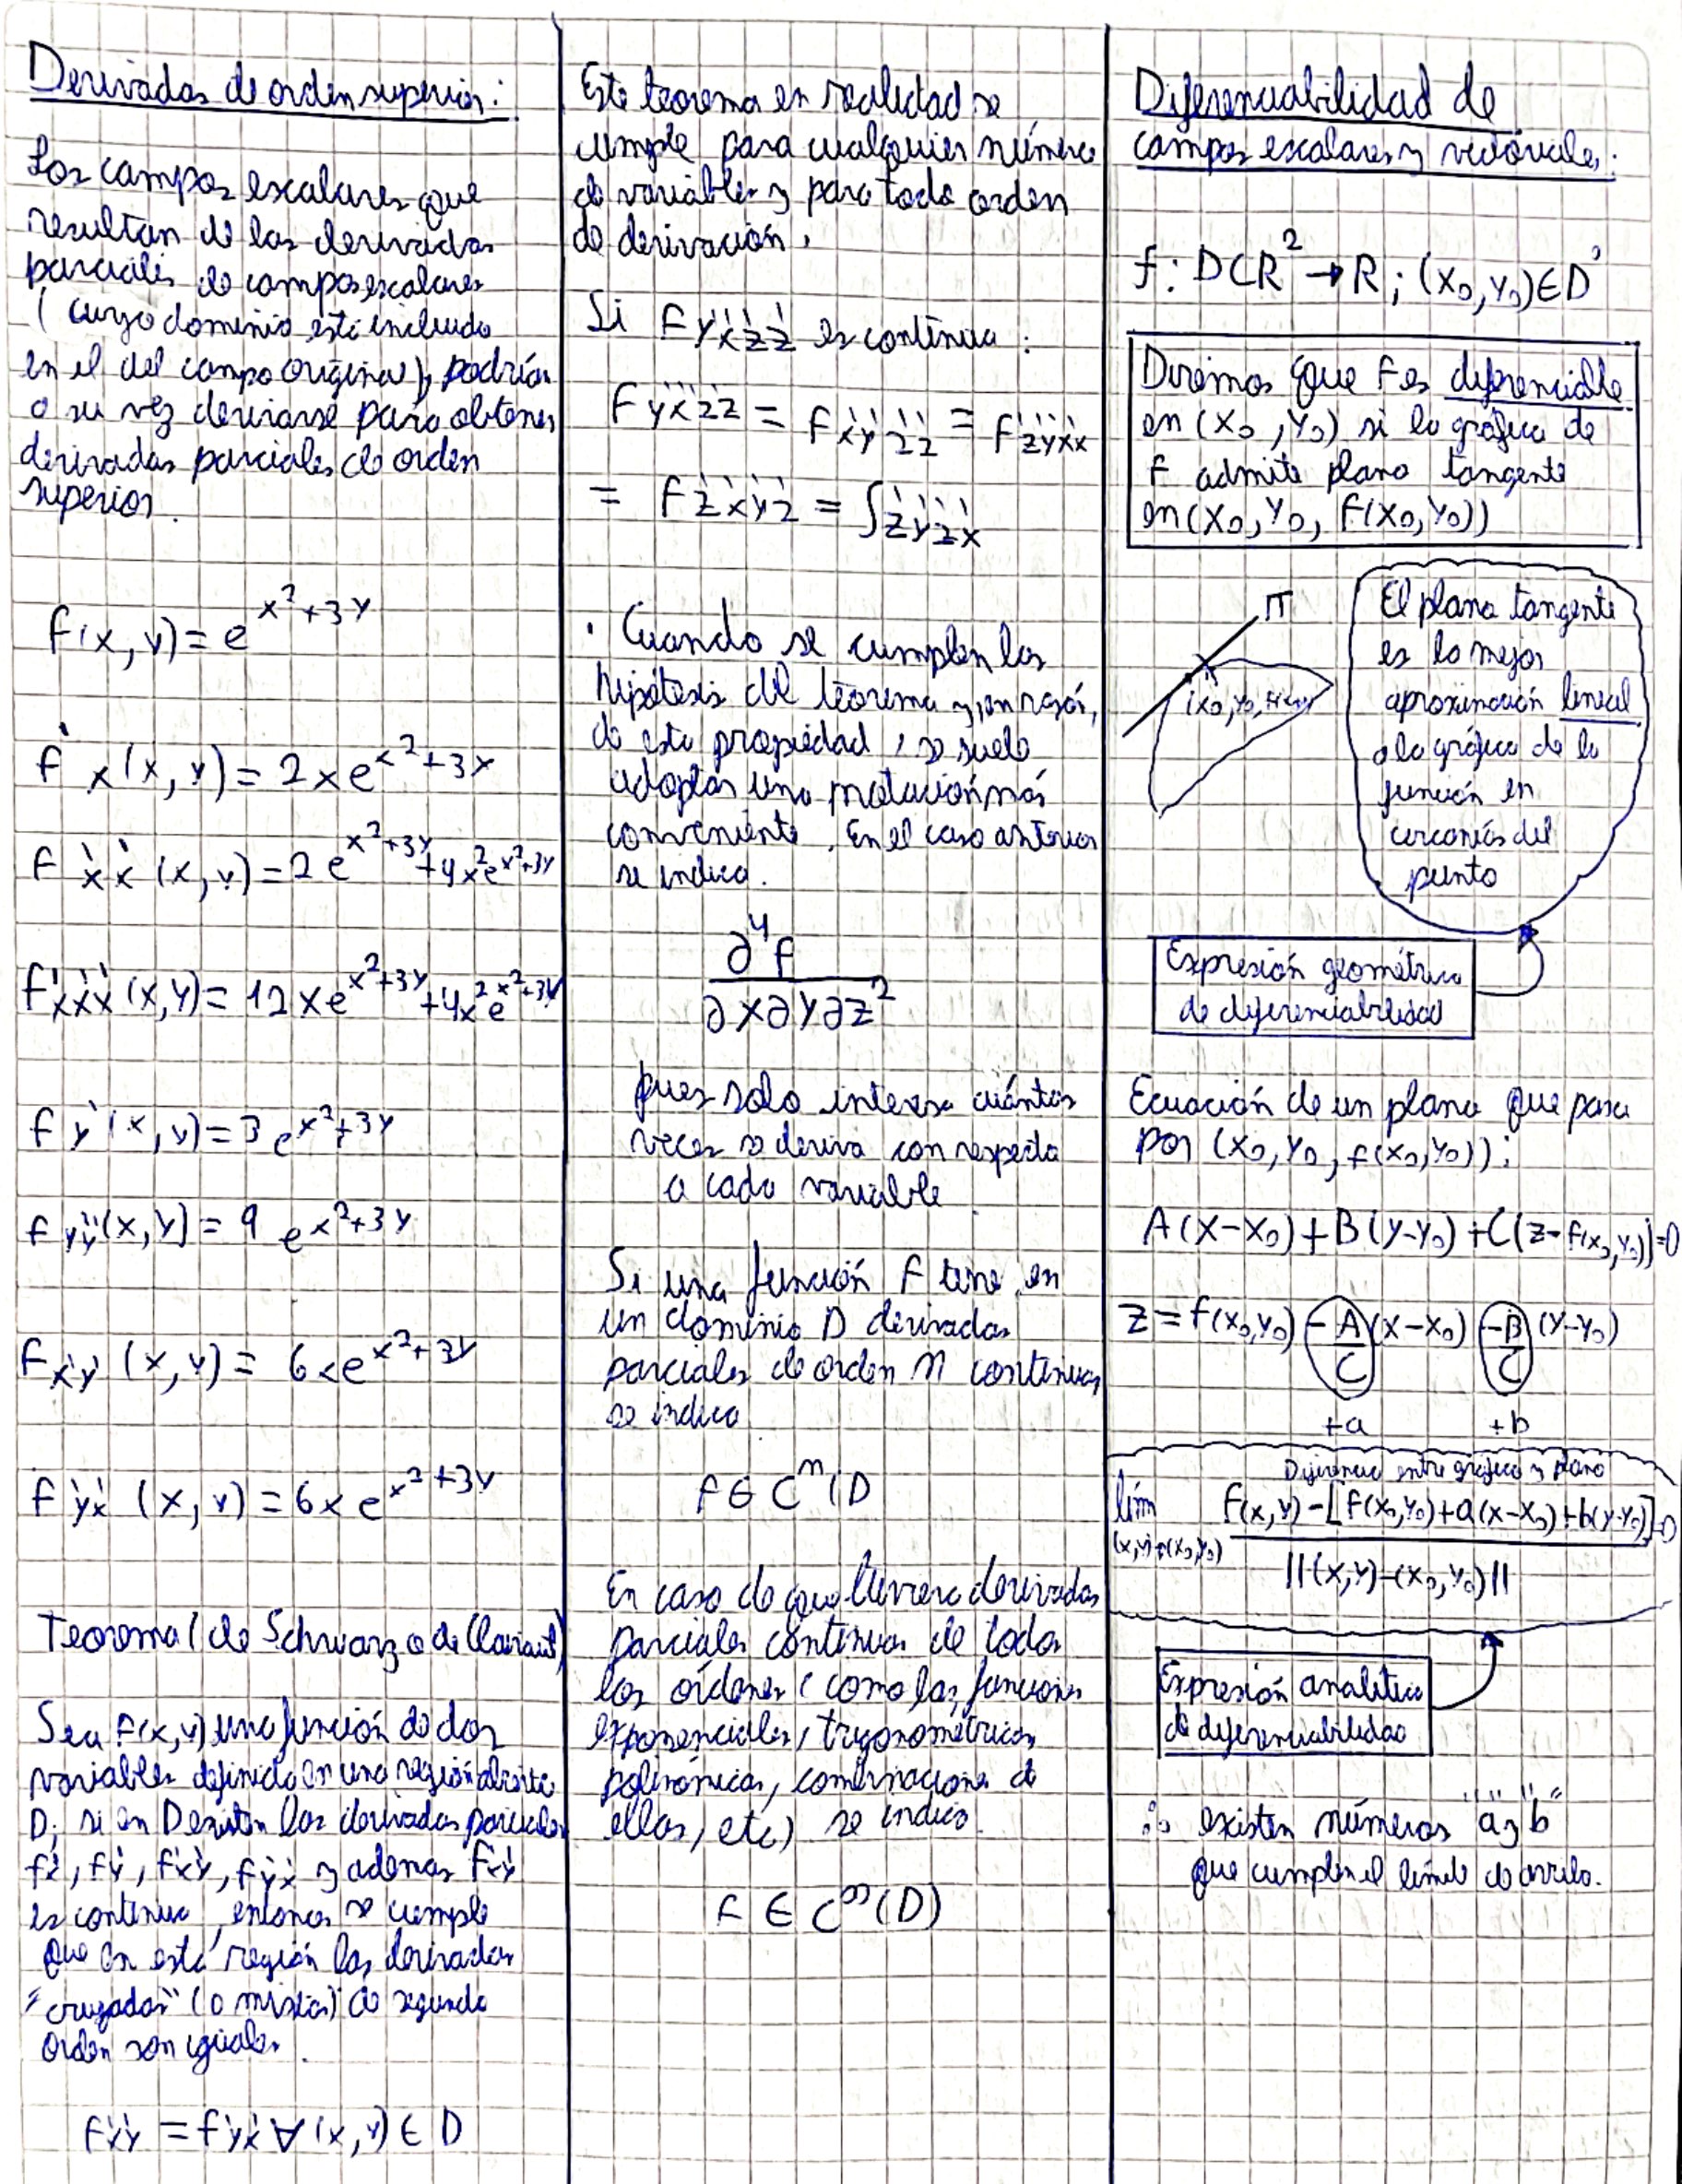 Derivadas de orden superior:
Los campos escalares que
resultan de las derivadas
parciales de campos escalares
(cuyo dominio está incluido
en el del campo original), podrían
a su vez derivarse para obtener
derivadas parciales de orden
superior.
f(x,y) = e^{x²+3y}
f'x(x,y) = 2xe^{x²+3y}
f''xx(x,y) = 2e^{x²+3y} + 4x²e^{x²+3y}
f'''xxx(x,y) = 12xe^{x²+3y} + 4x²e^{x²+3y}
f'y(x,y) = 3e^{x²+3y}
f''yy(x,y) = 9 e^{x²+3y}
f''xy(x,y) = 6xe^{x²+3y}
f''yx(x,y) = 6xe^{x²+3y}
Teorema (de Schwarz o de Clairaut)
Sea f(x,y) una función de dos
variables definida en una región abierta
D; si en D existen las derivadas parciales
f'x, f'y, f''xy, f''yx y ademas f''xy
es continua, entonces se cumple
que en esta región las derivadas
"cruzadas" (o mixtas) de segundo
orden son iguales.
f''xy = f''yx ∀ (x,y) ∈ D
Este teorema en realidad se
cumple para cualquier número
de variables y para todo orden
de derivación.
Si f''''yxzz es continua:
f''''yxzz = f''''xyzz = f''''zyxx
= f''''zxyz = f''''zyzx
· Cuando se cumplen las
hipótesis del teorema y, en razón,
de esta propiedad, se suele
adoptar una notación más
conveniente. En el caso anterior
se indica.
∂⁴f
∂x∂y∂z²
pues solo interesa cuántas
veces se deriva con respecto
a cada variable
Si una función f tiene en
un dominio D derivadas
parciales de orden n continuas
se indica
f ∈ C^n(D
En caso de que tuviera derivadas
parciales continuas de todos
los órdenes (como las funciones
exponenciales, trigonométricas
polinómicas, combinaciones de
ellas, etc) se indica
f ∈ C^∞(D)
Diferenciabilidad de
campos escalares y vectoriales:
f: D⊂R² → R; (x₀,y₀)∈D°
Diremos que f es diferenciable
en (x₀,y₀) si la gráfica de
f admite plano tangente
en (x₀,y₀,f(x₀,y₀))
π
El plano tangente
es la mejor
aproximación lineal
a la gráfica de la
función en
cercanías del
punto
Expresión geométrica
de diferenciabilidad
Ecuación de un plano que pasa
por (x₀,y₀,f(x₀,y₀)):
A(x-x₀)+B(y-y₀)+C(z-f(x₀,y₀))=0
z=f(x₀,y₀) -A/C (x-x₀) -B/C (y-y₀)
+a +b
Diferencia entre gráfica y plano
lím (x,y)→(x₀,y₀) f(x,y)-[f(x₀,y₀)+a(x-x₀)+b(y-y₀)] =0
||(x,y)-(x₀,y₀)||
Expresión analítica
de diferenciabilidad
∴ existen números "a" y "b"
que cumplen el límite de arriba.